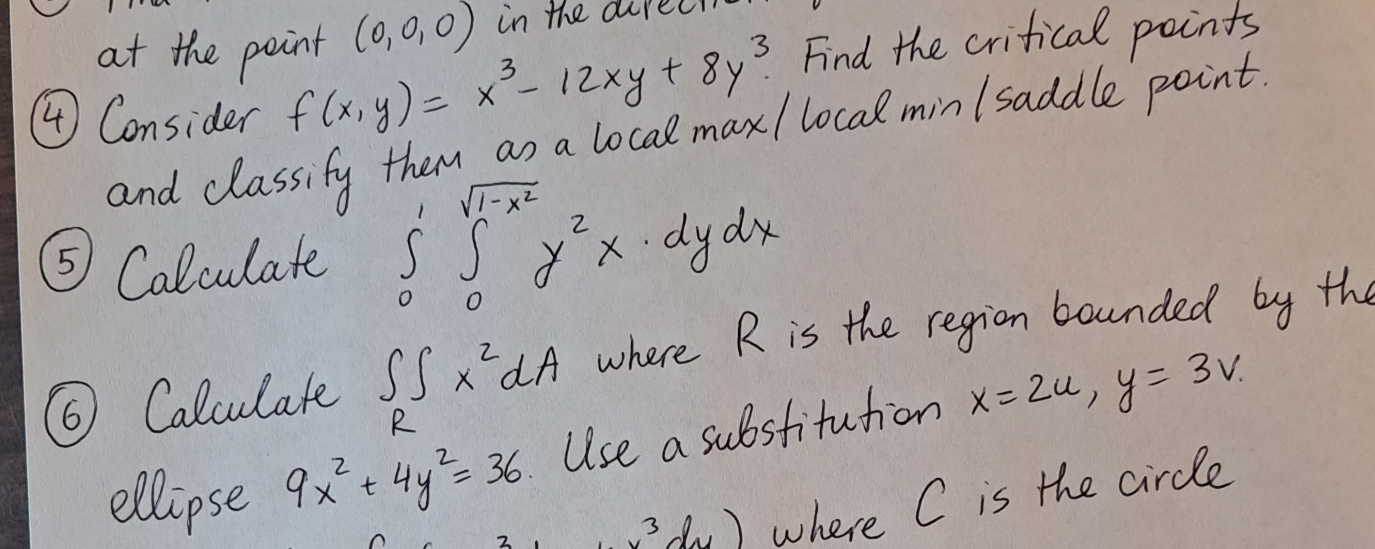 at the point (0,0,0) in the
④ Consider f(x,y) = x³ - 12xy + 8y³. Find the critical points
and classify them as a local max/local min/saddle point.
⑤ Calculate ∫₀¹ ∫₀^√(1-x²) y²x · dy dx
⑥ Calculate ∬_R x² dA where R is the region bounded by the
ellipse 9x² + 4y² = 36. Use a substitution x = 2u, y = 3v.
x³dy) where C is the circle